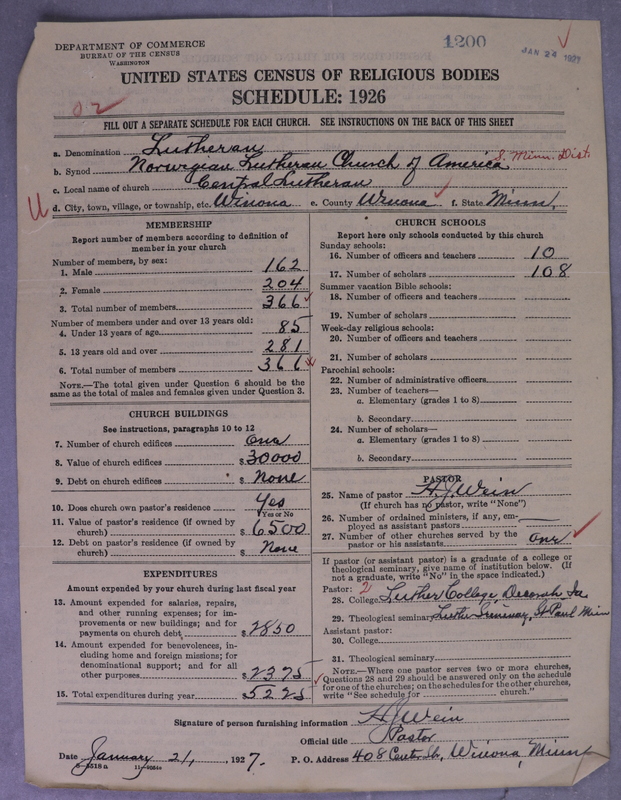 DEPARTMENT OF COMMERCE
BUREAU OF THE CENSUS
WASHINGTON
1200
JAN 24 1927
UNITED STATES CENSUS OF RELIGIOUS BODIES
SCHEDULE: 1926
FILL OUT A SEPARATE SCHEDULE FOR EACH CHURCH. SEE INSTRUCTIONS ON THE BACK OF THIS SHEET
a. Denomination Lutheran
b. Synod Norwegian Lutheran Church of America S. Minn. Dist.
c. Local name of church Central Lutheran
d. City, town, village, or township, etc. Winona e. County Winona f. State Minn.
MEMBERSHIP
Report number of members according to definition of
member in your church
Number of members, by sex:
1. Male 162
2. Female 204
3. Total number of members 366
Number of members under and over 13 years old:
4. Under 13 years of age 85
5. 13 years old and over 281
6. Total number of members 366
NOTE.—The total given under Question 6 should be the
same as the total of males and females given under Question 3.
CHURCH BUILDINGS
See instructions, paragraphs 10 to 12
7. Number of church edifices One
8. Value of church edifices $30000
9. Debt on church edifices $ None
10. Does church own pastor's residence Yes
Yes or No
11. Value of pastor's residence (if owned by
church) $6500
12. Debt on pastor's residence (if owned by
church) $ None
EXPENDITURES
Amount expended by your church during last fiscal year
13. Amount expended for salaries, repairs,
and other running expenses; for im-
provements or new buildings; and for
payments on church debt $2850
14. Amount expended for benevolences, in-
cluding home and foreign missions; for
denominational support; and for all
other purposes $2375
15. Total expenditures during year $5225
CHURCH SCHOOLS
Report here only schools conducted by this church
Sunday schools:
16. Number of officers and teachers 10
17. Number of scholars 108
Summer vacation Bible schools:
18. Number of officers and teachers
19. Number of scholars
Week-day religious schools:
20. Number of officers and teachers
21. Number of scholars
Parochial schools:
22. Number of administrative officers
23. Number of teachers—
a. Elementary (grades 1 to 8)
b. Secondary
24. Number of scholars—
a. Elementary (grades 1 to 8)
b. Secondary
PASTOR
25. Name of pastor H J Wein
(If church has no pastor, write "None")
26. Number of ordained ministers, if any, em-
ployed as assistant pastors —
27. Number of other churches served by the
pastor or his assistants one
If pastor (or assistant pastor) is a graduate of a college or
theological seminary, give name of institution below. (If
not a graduate, write "No" in the space indicated.)
Pastor: 2
28. College Luther College, Decorah, Ia.
29. Theological seminary Luther Seminary, St Paul Minn
Assistant pastor:
30. College
31. Theological seminary
NOTE.—Where one pastor serves two or more churches,
Questions 28 and 29 should be answered only on the schedule
for one of the churches; on the schedules for the other churches,
write "See schedule for church."
Signature of person furnishing information H J Wein
Official title Pastor
Date January 21, 1927. P. O. Address 408 Winona, Minn